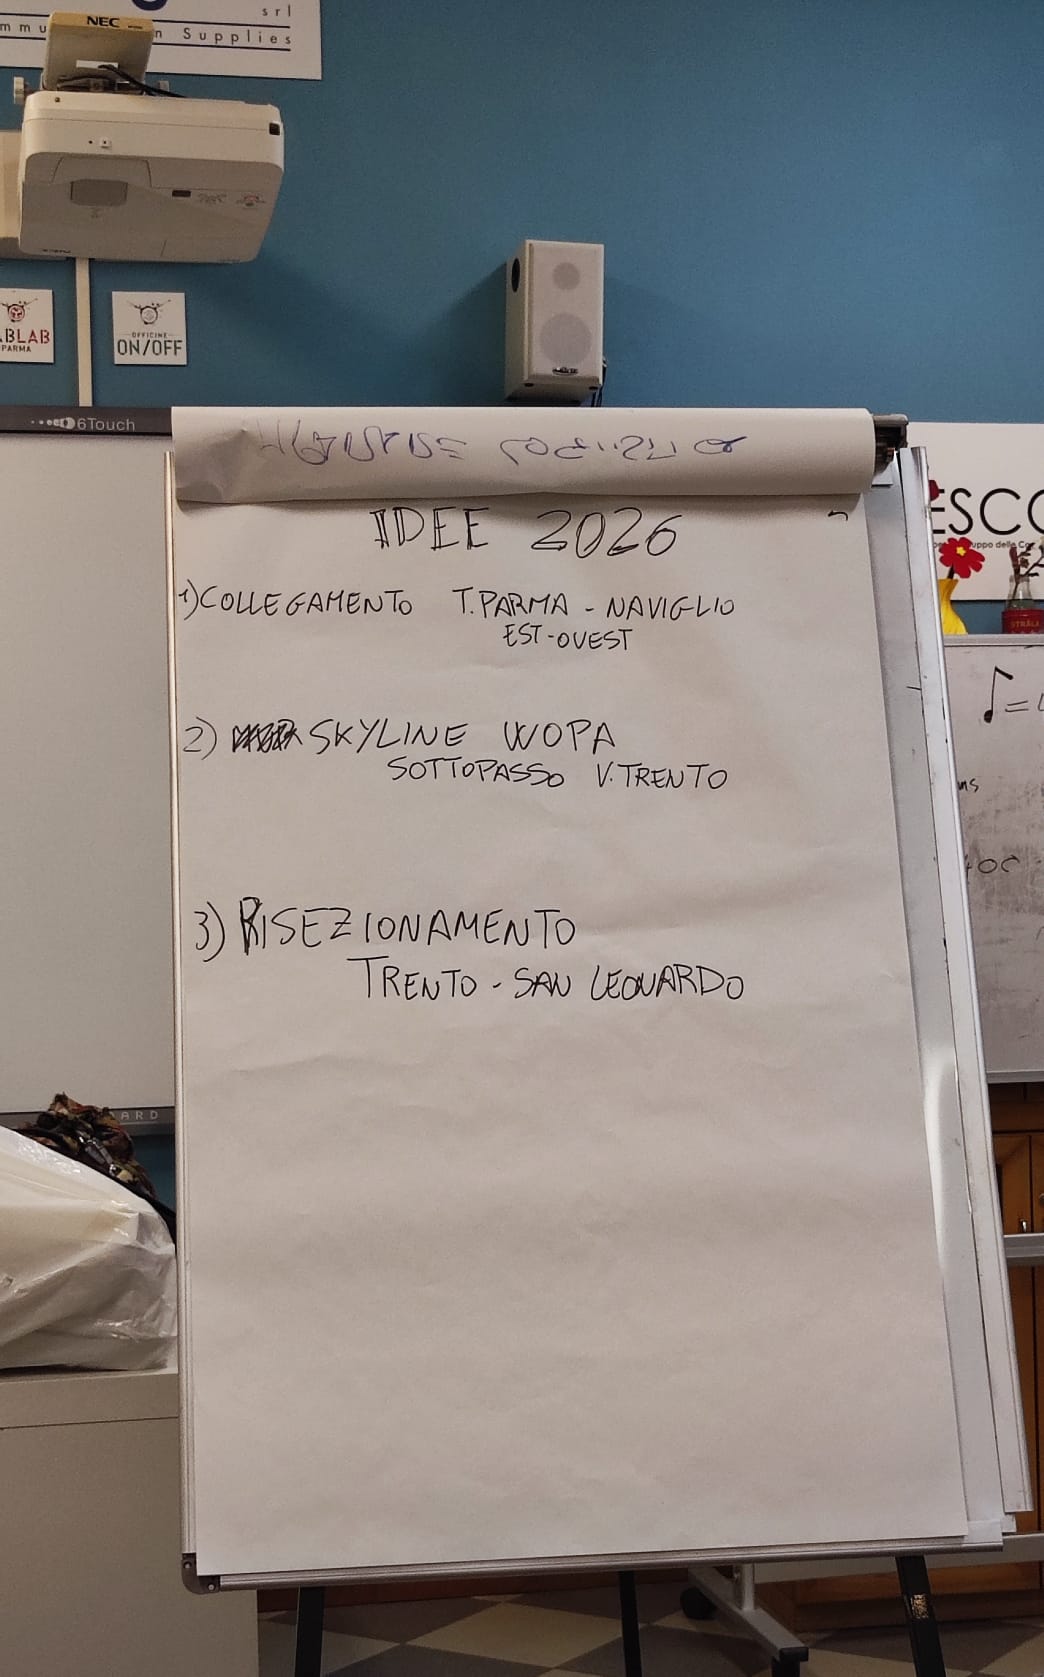 srl
Supplies
NEC
ABLAB
PARMA
OFFICINE
ON/OFF
6Touch
IDEE 2026
1) COLLEGAMENTO T.PARMA - NAVIGLIO
EST-OVEST
2) SKYLINE WOPA
SOTTOPASSO V.TRENTO
3) RISEZIONAMENTO
TRENTO - SAN LEONARDO
ESCO
uppo delle Co
STRÅLA
ARD